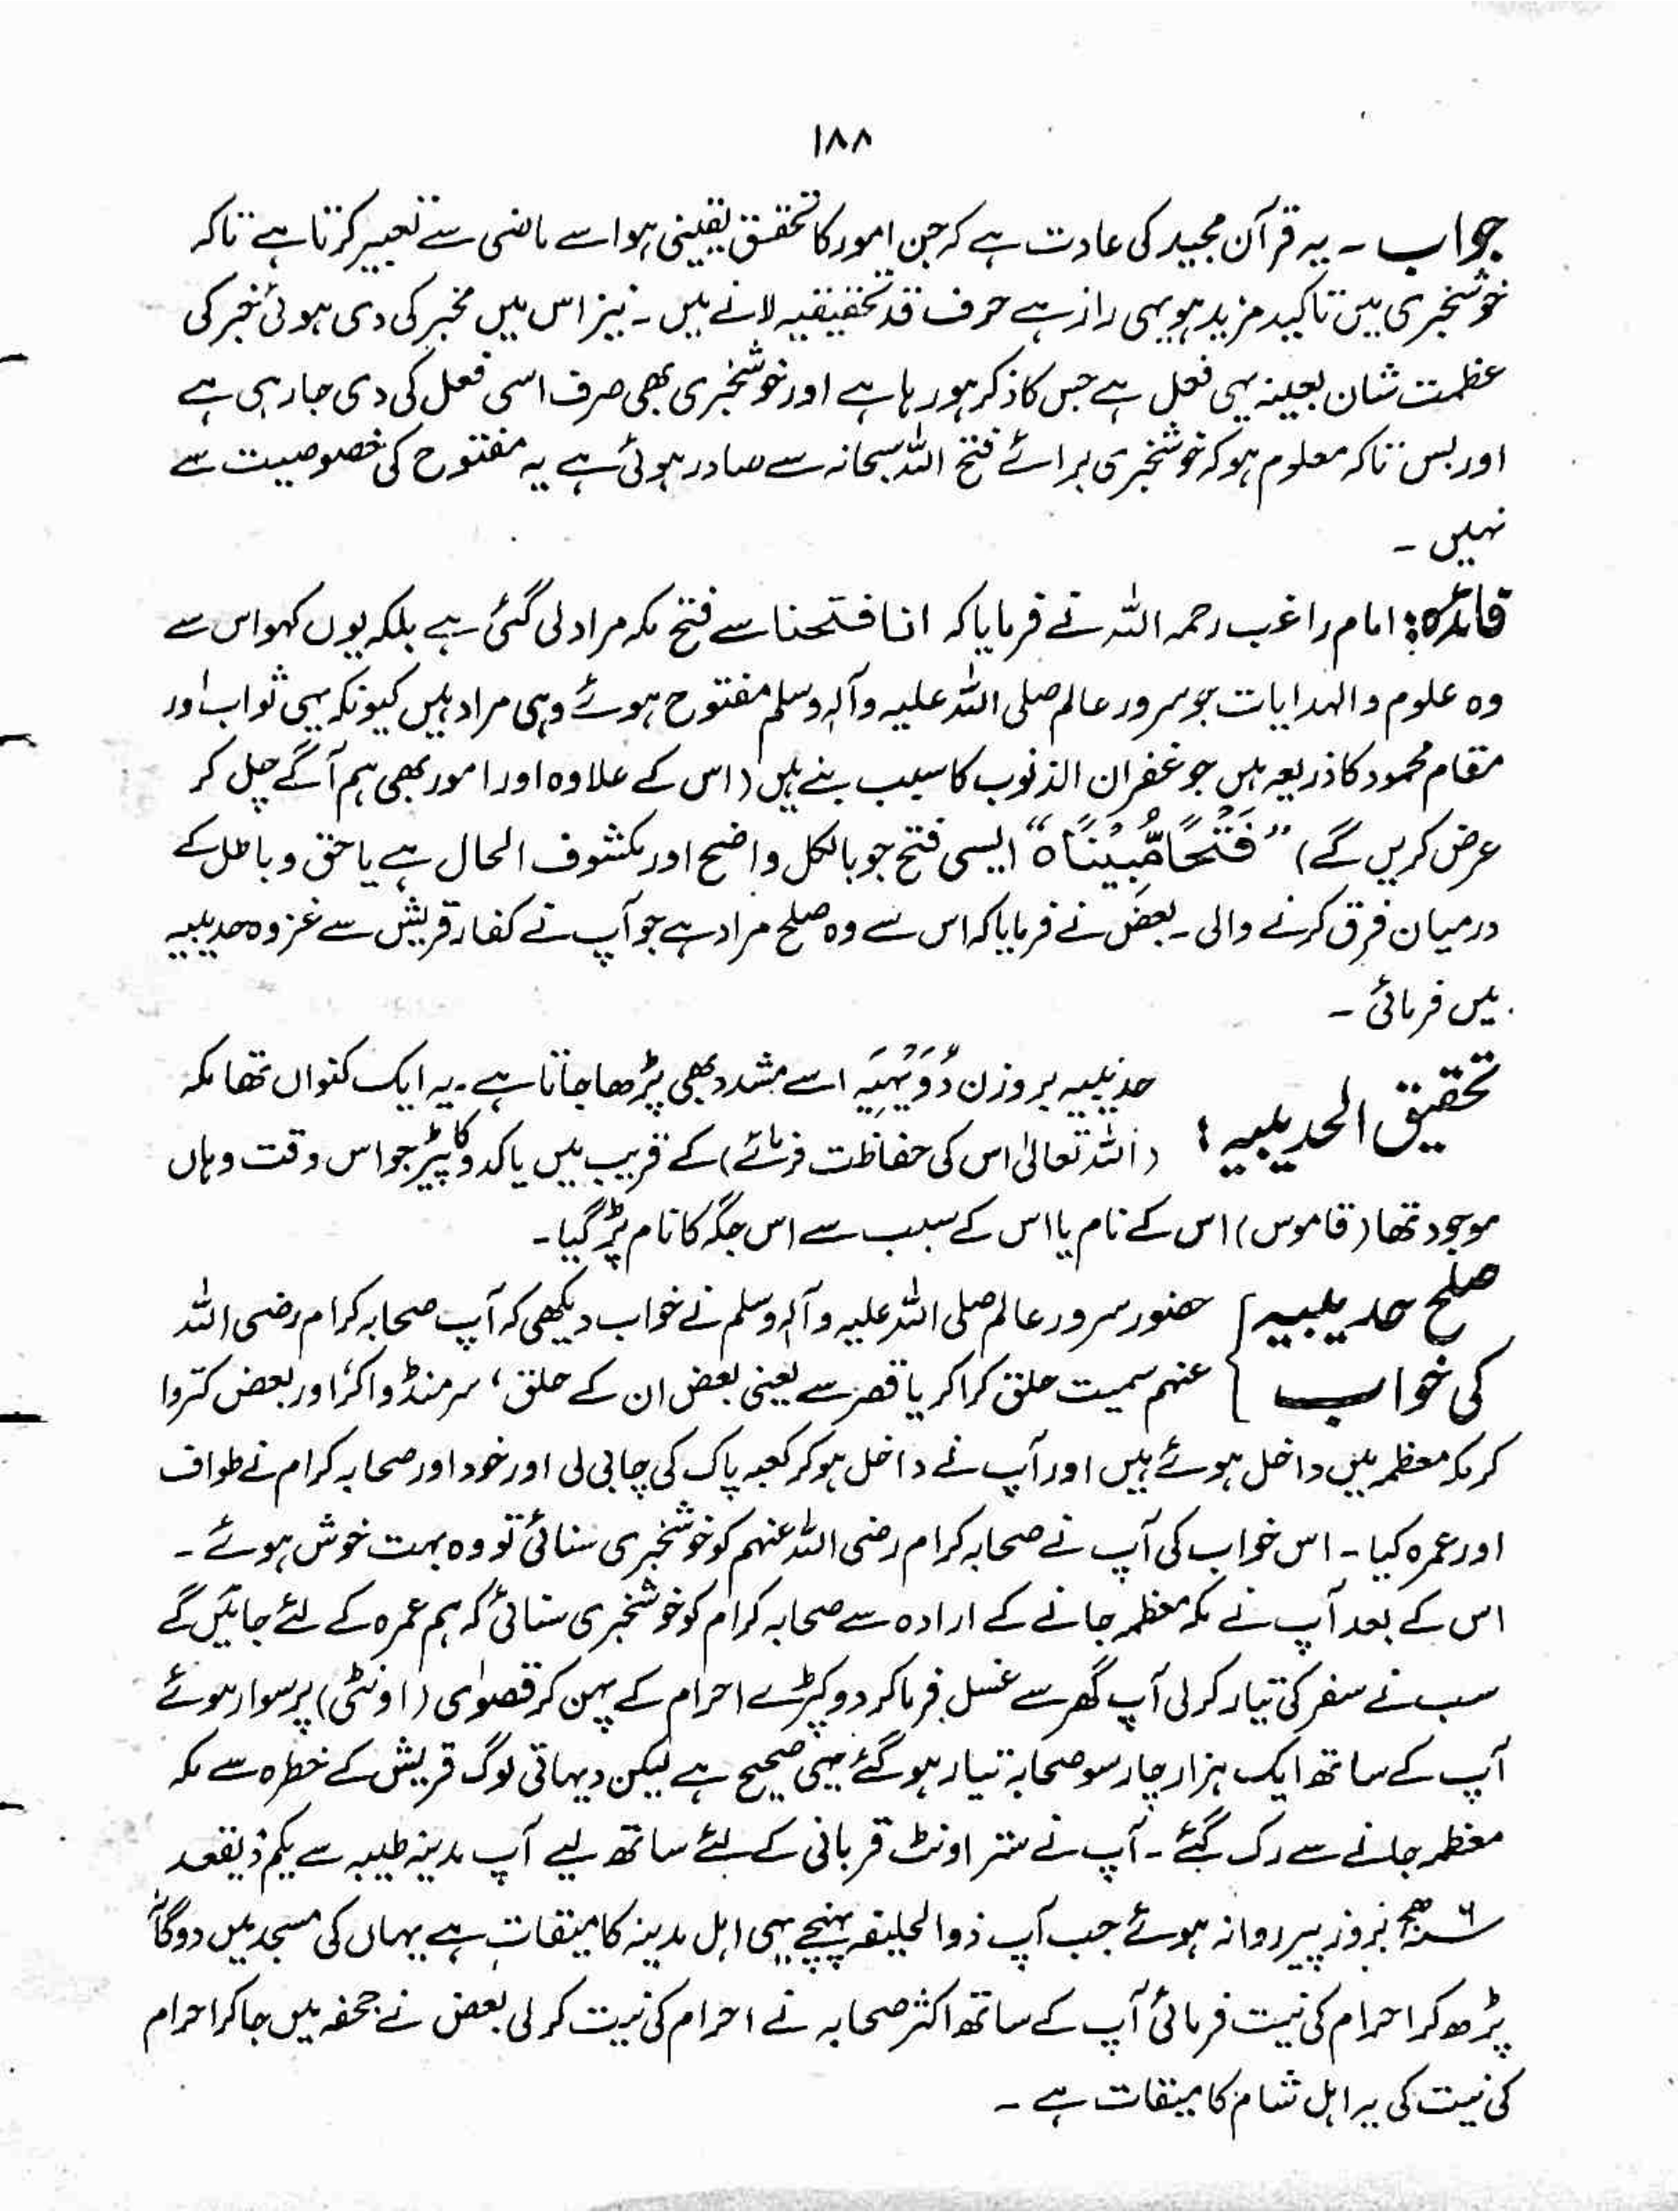 ۱۸۸
جواب ۔ یہ قرآن مجید کی عادت ہے کہ جن امور کا تحقق یقینی ہو اسے ماضی سے تعبیر کرتا ہے تاکہ
خوشخبری میں تاکید مزید ہو یہی راز ہے حرف قد تحقیقیہ لانے میں ۔ نیز اس میں مخبر کی دی ہوئی خبر کی
عظمت شان بعینہ یہی فعل ہے جس کا ذکر ہو رہا ہے اور خوشخبری بھی صرف اسی فعل کی دی جا رہی ہے
اور بس تاکہ معلوم ہو کہ خوشخبری برائے فتح اللہ سبحانہ سے صادر ہوئی ہے یہ مفتوح کی خصوصیت سے
نہیں ۔
فائدہ: امام راغب رحمہ اللہ نے فرمایا کہ انا فتحنا سے فتح مکہ مراد لی گئی ہے بلکہ یوں کہو اس سے
وہ علوم و الہدایات جو سرور عالم صلی اللہ علیہ وآلہٖ وسلم مفتوح ہوئے وہی مراد ہیں کیونکہ یہی ثواب اور
مقام محمود کا ذریعہ ہیں جو غفران الذنوب کا سبب بنے ہیں (اس کے علاوہ اور امور بھی ہم آگے چل کر
عرض کریں گے) ”فَتْحًا مُّبِيْنًا ہ“ ایسی فتح جو بالکل واضح اور مکشوف الحال ہے یا حق و باطل کے
درمیان فرق کرنے والی ۔ بعض نے فرمایا کہ اس سے وہ صلح مراد ہے جو آپ نے کفار قریش سے غزوہ حدیبیہ
میں فرمائی ۔
تحقیق الحدیبیہ : حدیبیہ بروزن دُوَیْہِیَہ اسے مشدد بھی پڑھا جاتا ہے ۔ یہ ایک کنواں تھا مکہ
(اللہ تعالیٰ اس کی حفاظت فرمائے) کے قریب میں یا کدو کا پیڑ جو اس وقت وہاں
موجود تھا (قاموس) اس کے نام یا اس کے سبب سے اس جگہ کا نام پڑ گیا ۔
صلح حدیبیہ } حضور سرور عالم صلی اللہ علیہ وآلہٖ وسلم نے خواب دیکھی کہ آپ صحابہ کرام رضی اللہ
کی خواب } عنہم سمیت حلق کرا کر یا قصر سے یعنی بعض ان کے حلق، سر منڈوا کر اور بعض کتروا
کر مکہ معظمہ میں داخل ہوئے ہیں اور آپ نے داخل ہو کر کعبہ پاک کی چابی لی اور خود اور صحابہ کرام نے طواف
اور عمرہ کیا ۔ اس خواب کی آپ نے صحابہ کرام رضی اللہ عنہم کو خوشخبری سنائی تو وہ بہت خوش ہوئے ۔
اس کے بعد آپ نے مکہ معظمہ جانے کے ارادہ سے صحابہ کرام کو خوشخبری سنائی کہ ہم عمرہ کے لئے جائیں گے
سب نے سفر کی تیار کرلی آپ گھر سے غسل فرما کر دو کپڑے احرام کے پہن کر قصوٰی (اونٹی) پر سوار ہوئے
آپ کے ساتھ ایک ہزار چار سو صحابہ تیار ہو گئے یہی صحیح ہے لیکن دیہاتی لوگ قریش کے خطرہ سے مکہ
معظمہ جانے سے رک گئے ۔ آپ نے ستر اونٹ قربانی کے لئے ساتھ لیے آپ مدینہ طیبہ سے یکم ذیقعد
۶ھ بروز پیر روانہ ہوئے جب آپ ذوالحلیفہ پہنچے یہی اہل مدینہ کا میقات ہے یہاں کی مسجد میں دوگانہ
پڑھ کر احرام کی نیت فرمائی آپ کے ساتھ اکثر صحابہ نے احرام کی نیت کرلی بعض نے جحفہ میں جا کر احرام
کی نیت کی یہ اہل شام کا میقات ہے ۔